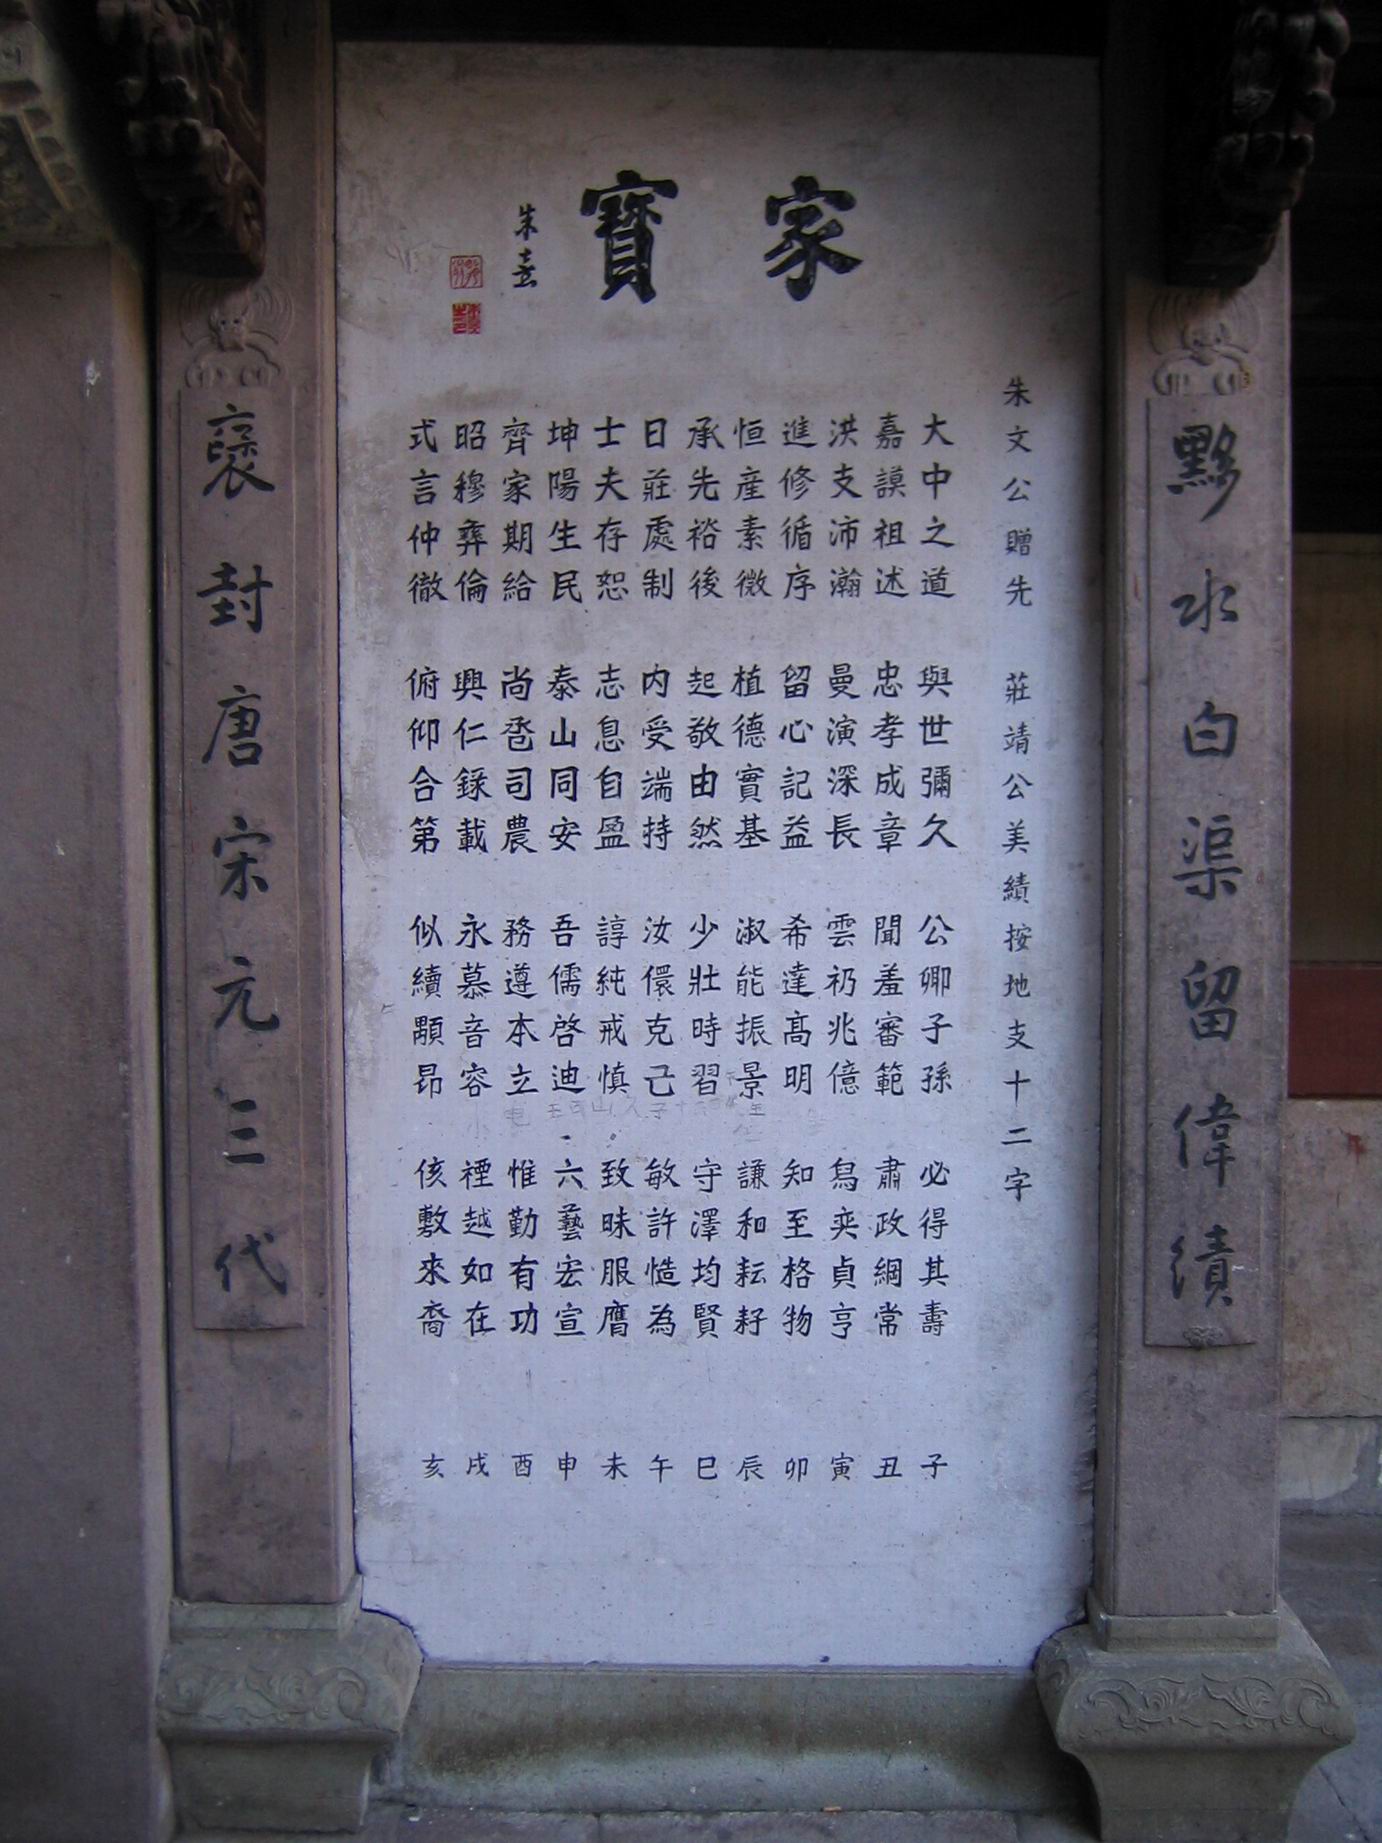 黟水白渠留偉績
家寶
朱熹
朱文公贈先 莊靖公美績按地支十二字
大中之道 與世彌久 公卿子孫 必得其壽 子
嘉謨祖述 忠孝成章 聞羞審範 肅政綱常 丑
洪支沛瀚 曼演深長 雲礽兆億 舄奕貞亨 寅
進修循序 留心記益 希達高明 知至格物 卯
恒產素微 植德實基 淑能振景 謙和耘耔 辰
承先裕後 起敬由然 少壯時習 守澤均賢 巳
日莊處制 內受端持 汝儇克己 敏許慥為 午
士夫存恕 志息自盈 諄純戒慎 致昧服膺 未
坤陽生民 泰山同安 吾儒啓迪 六藝宏宣 申
齊家期給 尚司農 務遵本立 惟勤有功 酉
昭穆彝倫 興仁錄載 永慕音容 禋越如在 戌
式言仲徹 俯仰合第 似續顒昂 侅敷來裔 亥
褒封唐宋元三代